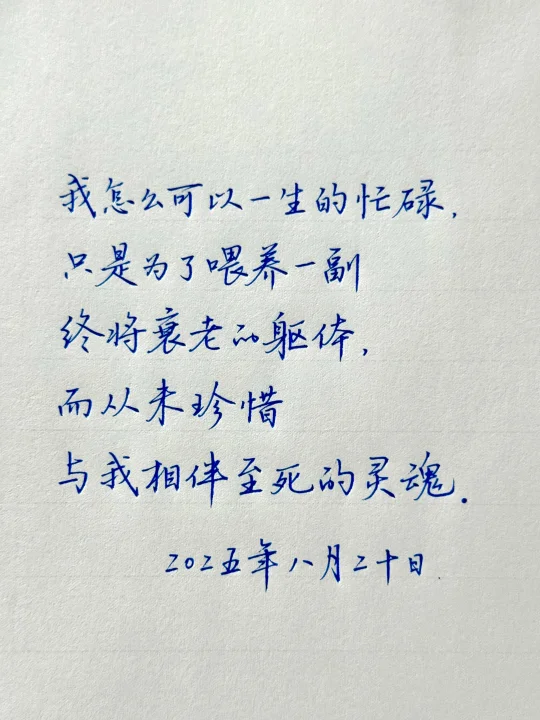 我怎么可以一生的忙碌,
只是为了喂养一副
终将衰老的躯体,
而从未珍惜
与我相伴至死的灵魂.
二〇二五年八月二十日